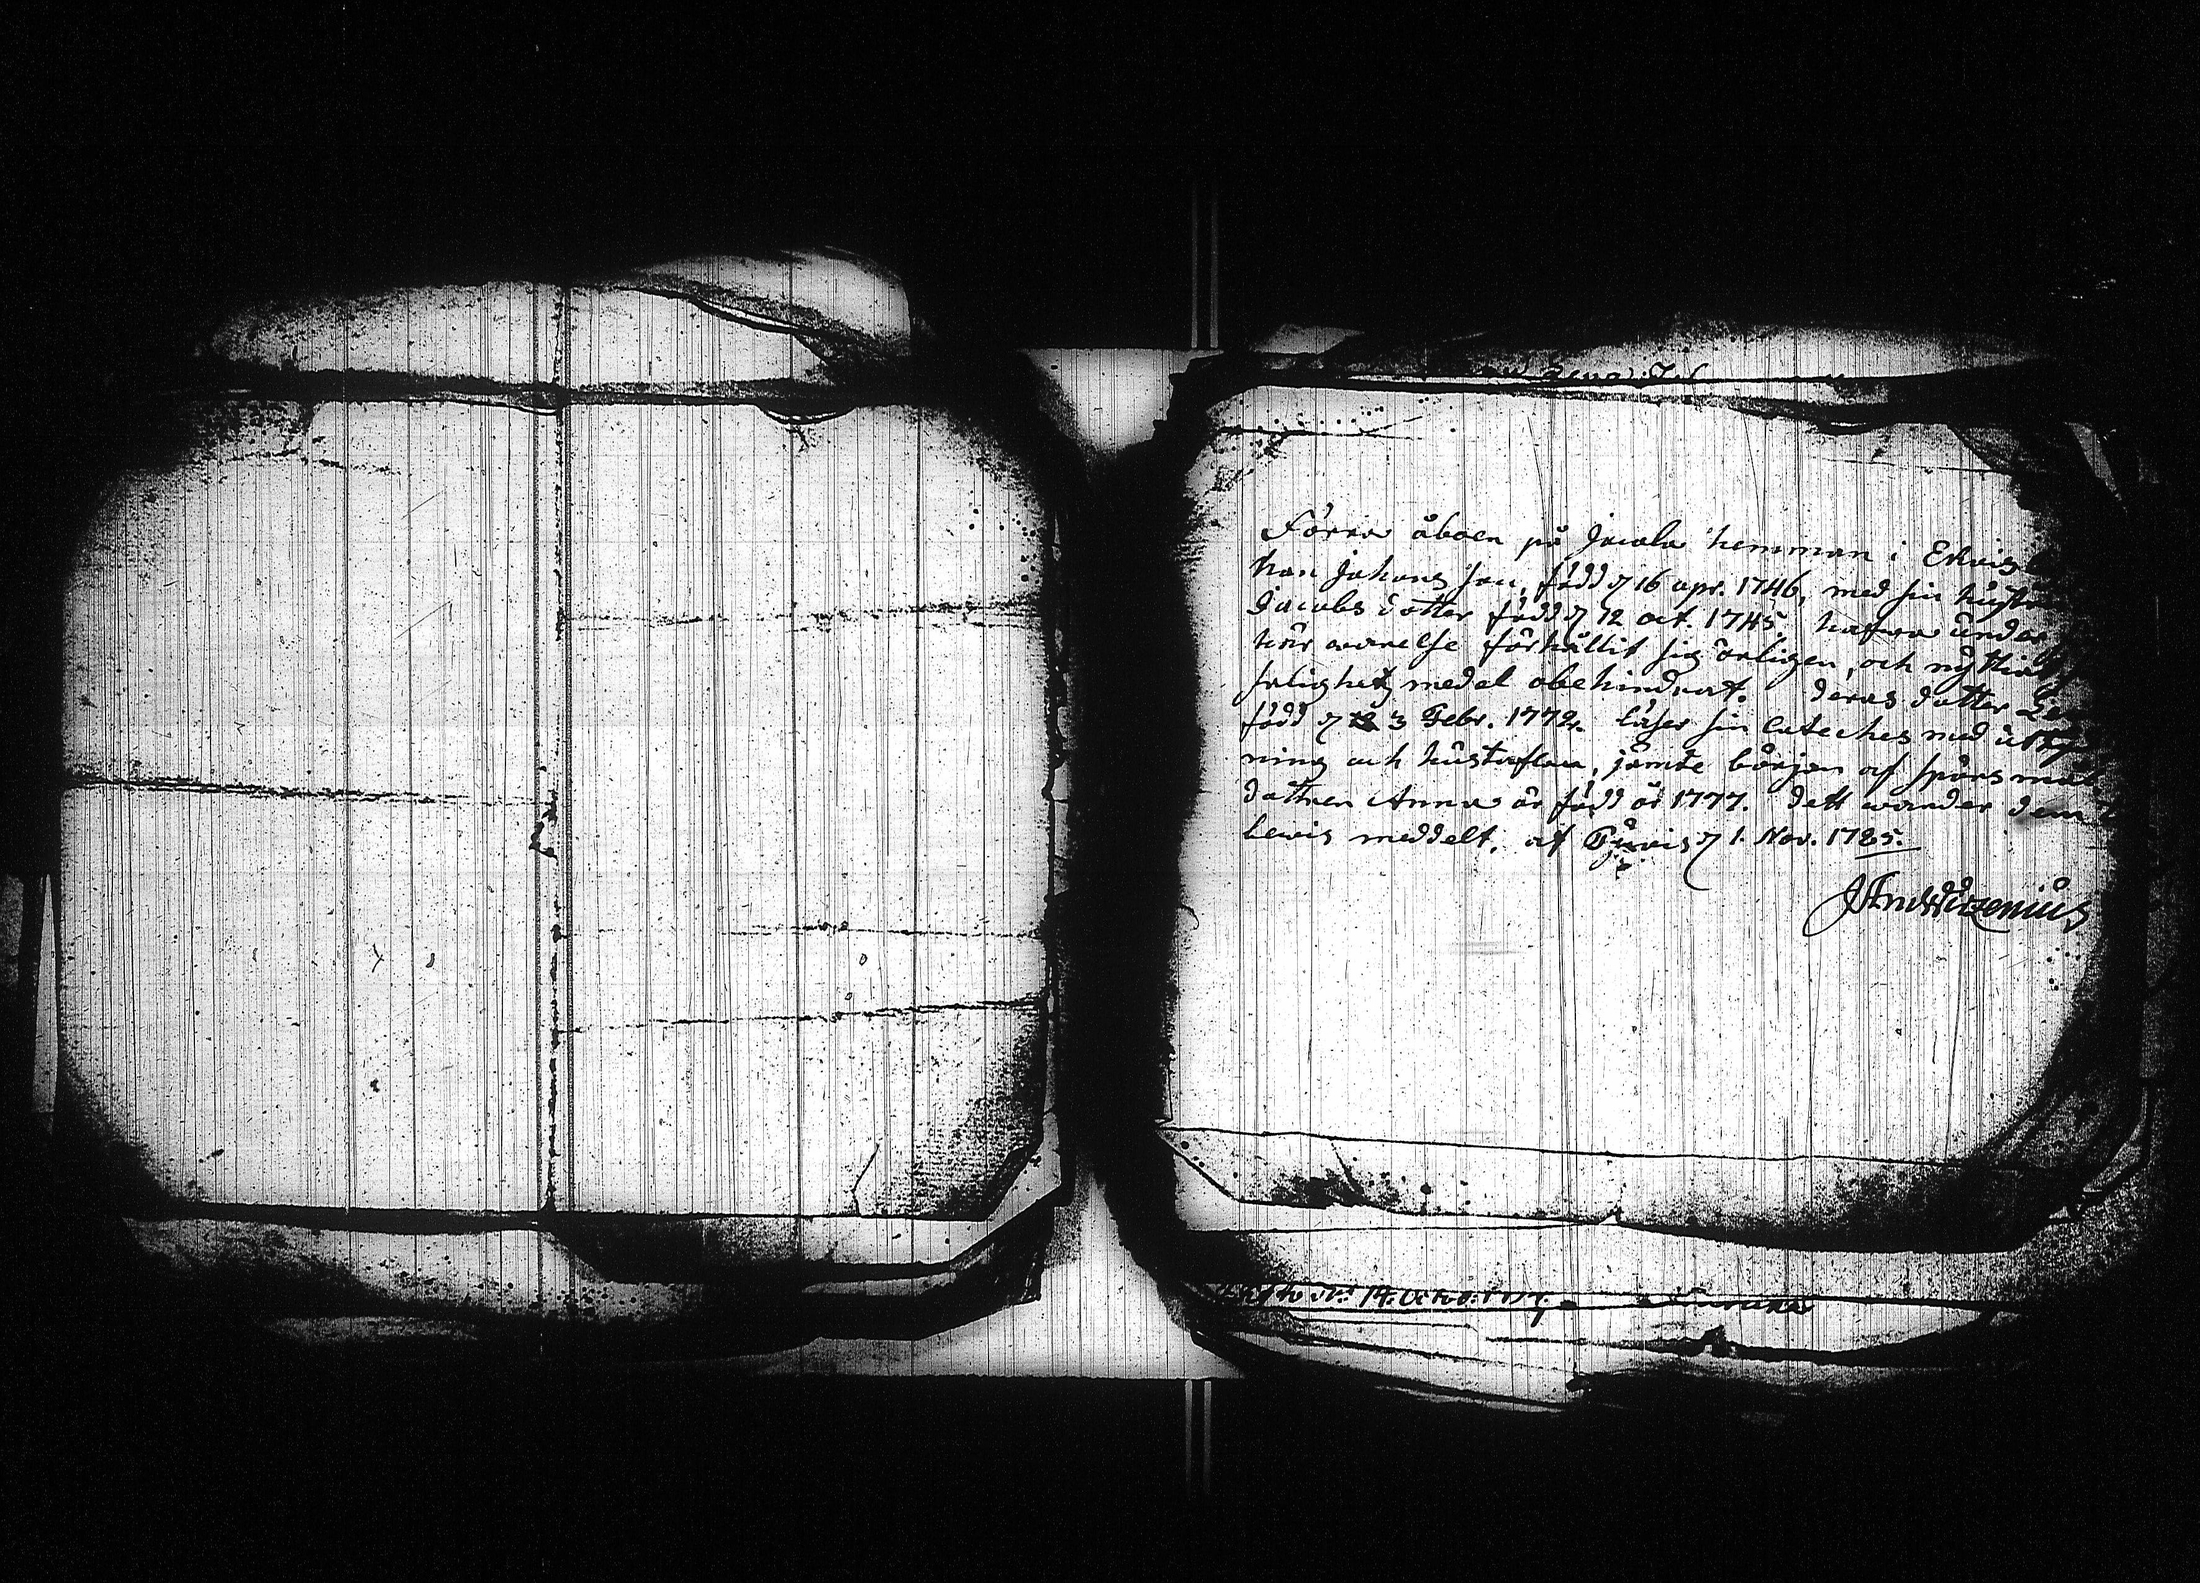 Förra åboen på Jacola hemman i
han Johans son, född d 16 apr. 1746, med sin hustru
Jacobs dotter född d 12 oct. 1745, hafwa under
här warelse förhållit sig ärligen, och nyttiat
salighetz medel obehindrat. deras dotter
född d 3 Febr. 1772. läser sin Cateches med
ning och hustaflan, jämte början af spörsmål
dottren Anna är född år 1777. Dett warder dem
bewis meddelt, af d 1. Nov. 1785.